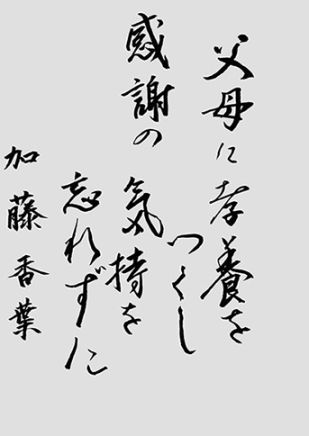 父母に孝養を
つくし
感謝の気持を
忘れずに
加藤香葉